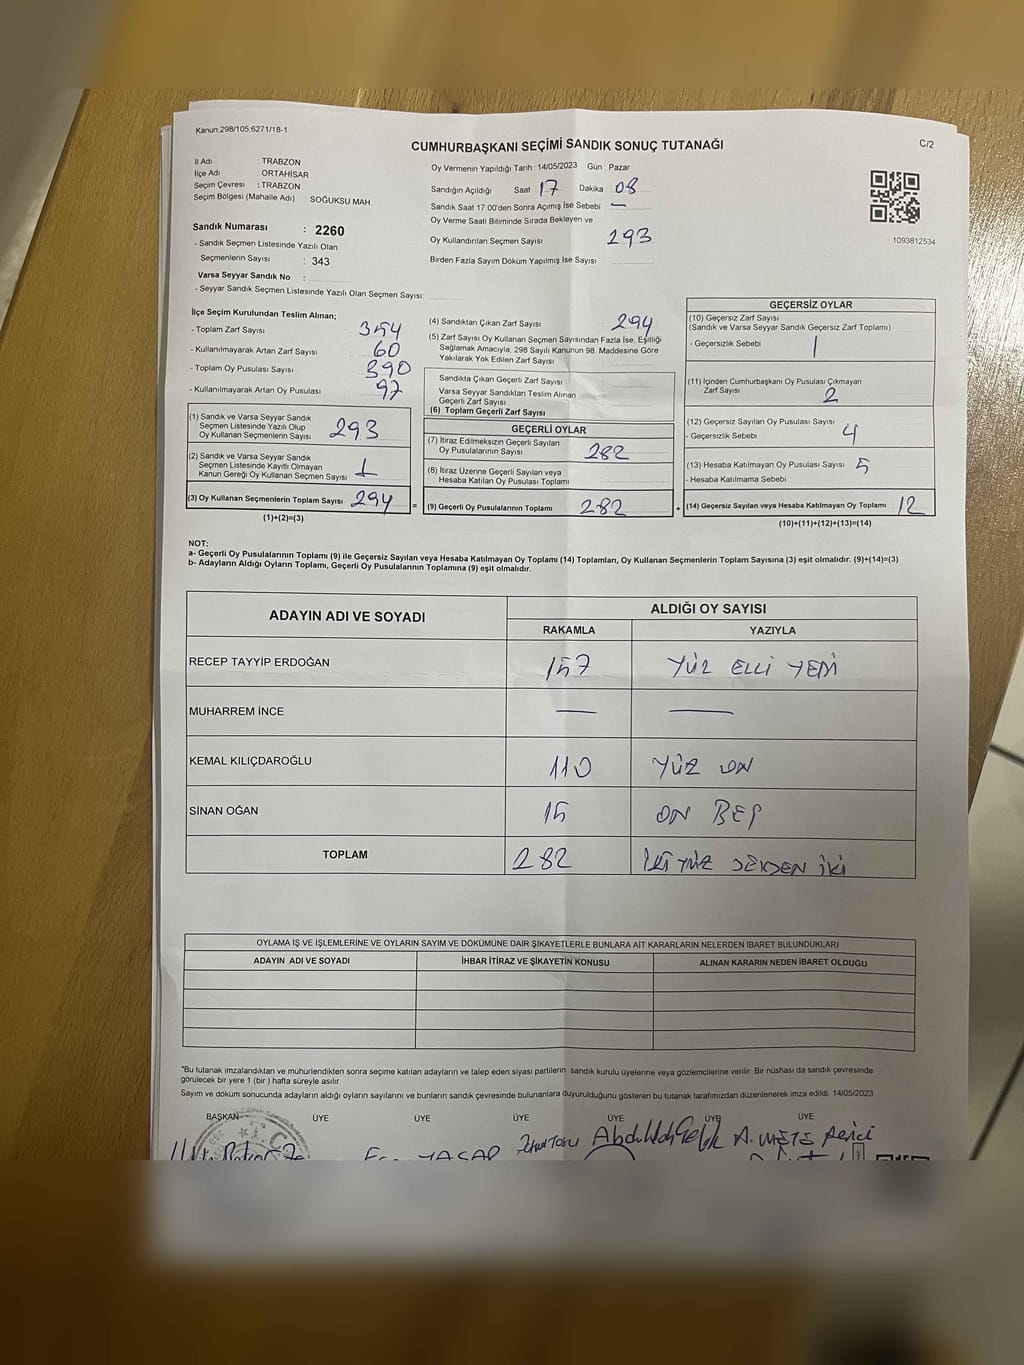 Kanun:298/105,6271/18-1
CUMHURBAŞKANI SEÇİMİ SANDIK SONUÇ TUTANAĞI
C/2
İl Adı : TRABZON
İlçe Adı : ORTAHİSAR
Seçim Çevresi : TRABZON
Seçim Bölgesi (Mahalle Adı) SOĞUKSU MAH.
Sandık Numarası : 2260
- Sandık Seçmen Listesinde Yazılı Olan
Seçmenlerin Sayısı : 343
Varsa Seyyar Sandık No :
- Seyyar Sandık Seçmen Listesinde Yazılı Olan Seçmen Sayısı:
Oy Vermenin Yapıldığı Tarih :14/05/2023 Gün : Pazar
Sandığın Açıldığı Saat 17 Dakika 08
Sandık Saat 17.00'den Sonra Açımış İse Sebebi : —
Oy Verme Saati Bitiminde Sırada Bekleyen ve
Oy Kullandırılan Seçmen Sayısı 293
Birden Fazla Sayım Döküm Yapılmış İse Sayısı :
1093812534
İlçe Seçim Kurulundan Teslim Alınan;
- Toplam Zarf Sayısı 354
- Kullanılmayarak Artan Zarf Sayısı 60
- Toplam Oy Pusulası Sayısı 390
- Kullanılmayarak Artan Oy Pusulası 97
(1) Sandık ve Varsa Seyyar Sandık
Seçmen Listesinde Yazılı Olup
Oy Kullanan Seçmenlerin Sayısı 293
(2) Sandık ve Varsa Seyyar Sandık
Seçmen Listesinde Kayıtlı Olmayan
Kanun Gereği Oy Kullanan Seçmen Sayısı 1
(3) Oy Kullanan Seçmenlerin Toplam Sayısı 294
(1)+(2)=(3)
(4) Sandıktan Çıkan Zarf Sayısı 294
(5) Zarf Sayısı Oy Kullanan Seçmen Sayısından Fazla İse, Eşitliği
Sağlamak Amacıyla; 298 Sayılı Kanunun 98. Maddesine Göre
Yakılarak Yok Edilen Zarf Sayısı
Sandıkta Çıkan Geçerli Zarf Sayısı
Varsa Seyyar Sandıktan Teslim Alınan
Geçerli Zarf Sayısı
(6) Toplam Geçerli Zarf Sayısı
GEÇERLİ OYLAR
(7) İtiraz Edilmeksizin Geçerli Sayılan
Oy Pusulalarının Sayısı 282
(8) İtiraz Üzerine Geçerli Sayılan veya
Hesaba Katılan Oy Pusulası Toplamı
= (9) Geçerli Oy Pusulalarının Toplamı 282
GEÇERSİZ OYLAR
(10) Geçersiz Zarf Sayısı
(Sandık ve Varsa Seyyar Sandık Geçersiz Zarf Toplamı)
- Geçersizlik Sebebi 1
(11) İçinden Cumhurbaşkanı Oy Pusulası Çıkmayan
Zarf Sayısı 2
(12) Geçersiz Sayılan Oy Pusulası Sayısı
- Geçersizlik Sebebi 4
(13) Hesaba Katılmayan Oy Pusulası Sayısı 5
- Hesaba Katılmama Sebebi
+ (14) Geçersiz Sayılan veya Hesaba Katılmayan Oy Toplamı 12
(10)+(11)+(12)+(13)=(14)
NOT:
a- Geçerli Oy Pusulalarının Toplamı (9) ile Geçersiz Sayılan veya Hesaba Katılmayan Oy Toplamı (14) Toplamları, Oy Kullanan Seçmenlerin Toplam Sayısına (3) eşit olmalıdır. (9)+(14)=(3)
b- Adayların Aldığı Oyların Toplamı, Geçerli Oy Pusulalarının Toplamına (9) eşit olmalıdır.
ADAYIN ADI VE SOYADI ALDIĞI OY SAYISI
RAKAMLA YAZIYLA
RECEP TAYYİP ERDOĞAN 157 YÜZ ELLİ YEDİ
MUHARREM İNCE — —
KEMAL KILIÇDAROĞLU 110 YÜZ ON
SİNAN OĞAN 15 ON BEŞ
TOPLAM 282 İKİ YÜZ SEKSEN İKİ
OYLAMA İŞ VE İŞLEMLERİNE VE OYLARIN SAYIM VE DÖKÜMÜNE DAİR ŞİKAYETLERLE BUNLARA AİT KARARLARIN NELERDEN İBARET BULUNDUKLARI
ADAYIN ADI VE SOYADI İHBAR İTİRAZ VE ŞİKAYETİN KONUSU ALINAN KARARIN NEDEN İBARET OLDUĞU
*Bu tutanak imzalandıktan ve mühürlendikten sonra seçime katılan adayların ve talep eden siyasi partilerin sandık kurulu üyelerine veya gözlemcilerine verilir. Bir nüshası da sandık çevresinde
görülecek bir yere 1 (bir ) hafta süreyle asılır.
Sayım ve döküm sonucunda adayların aldığı oyların sayılarını ve bunların sandık çevresinde bulunanlara duyurulduğunu gösteren bu tutanak tarafımızdan düzenlenerek imza edildi. 14/05/2023
BAŞKAN ÜYE ÜYE ÜYE ÜYE ÜYE ÜYE
YAŞAR A. METE